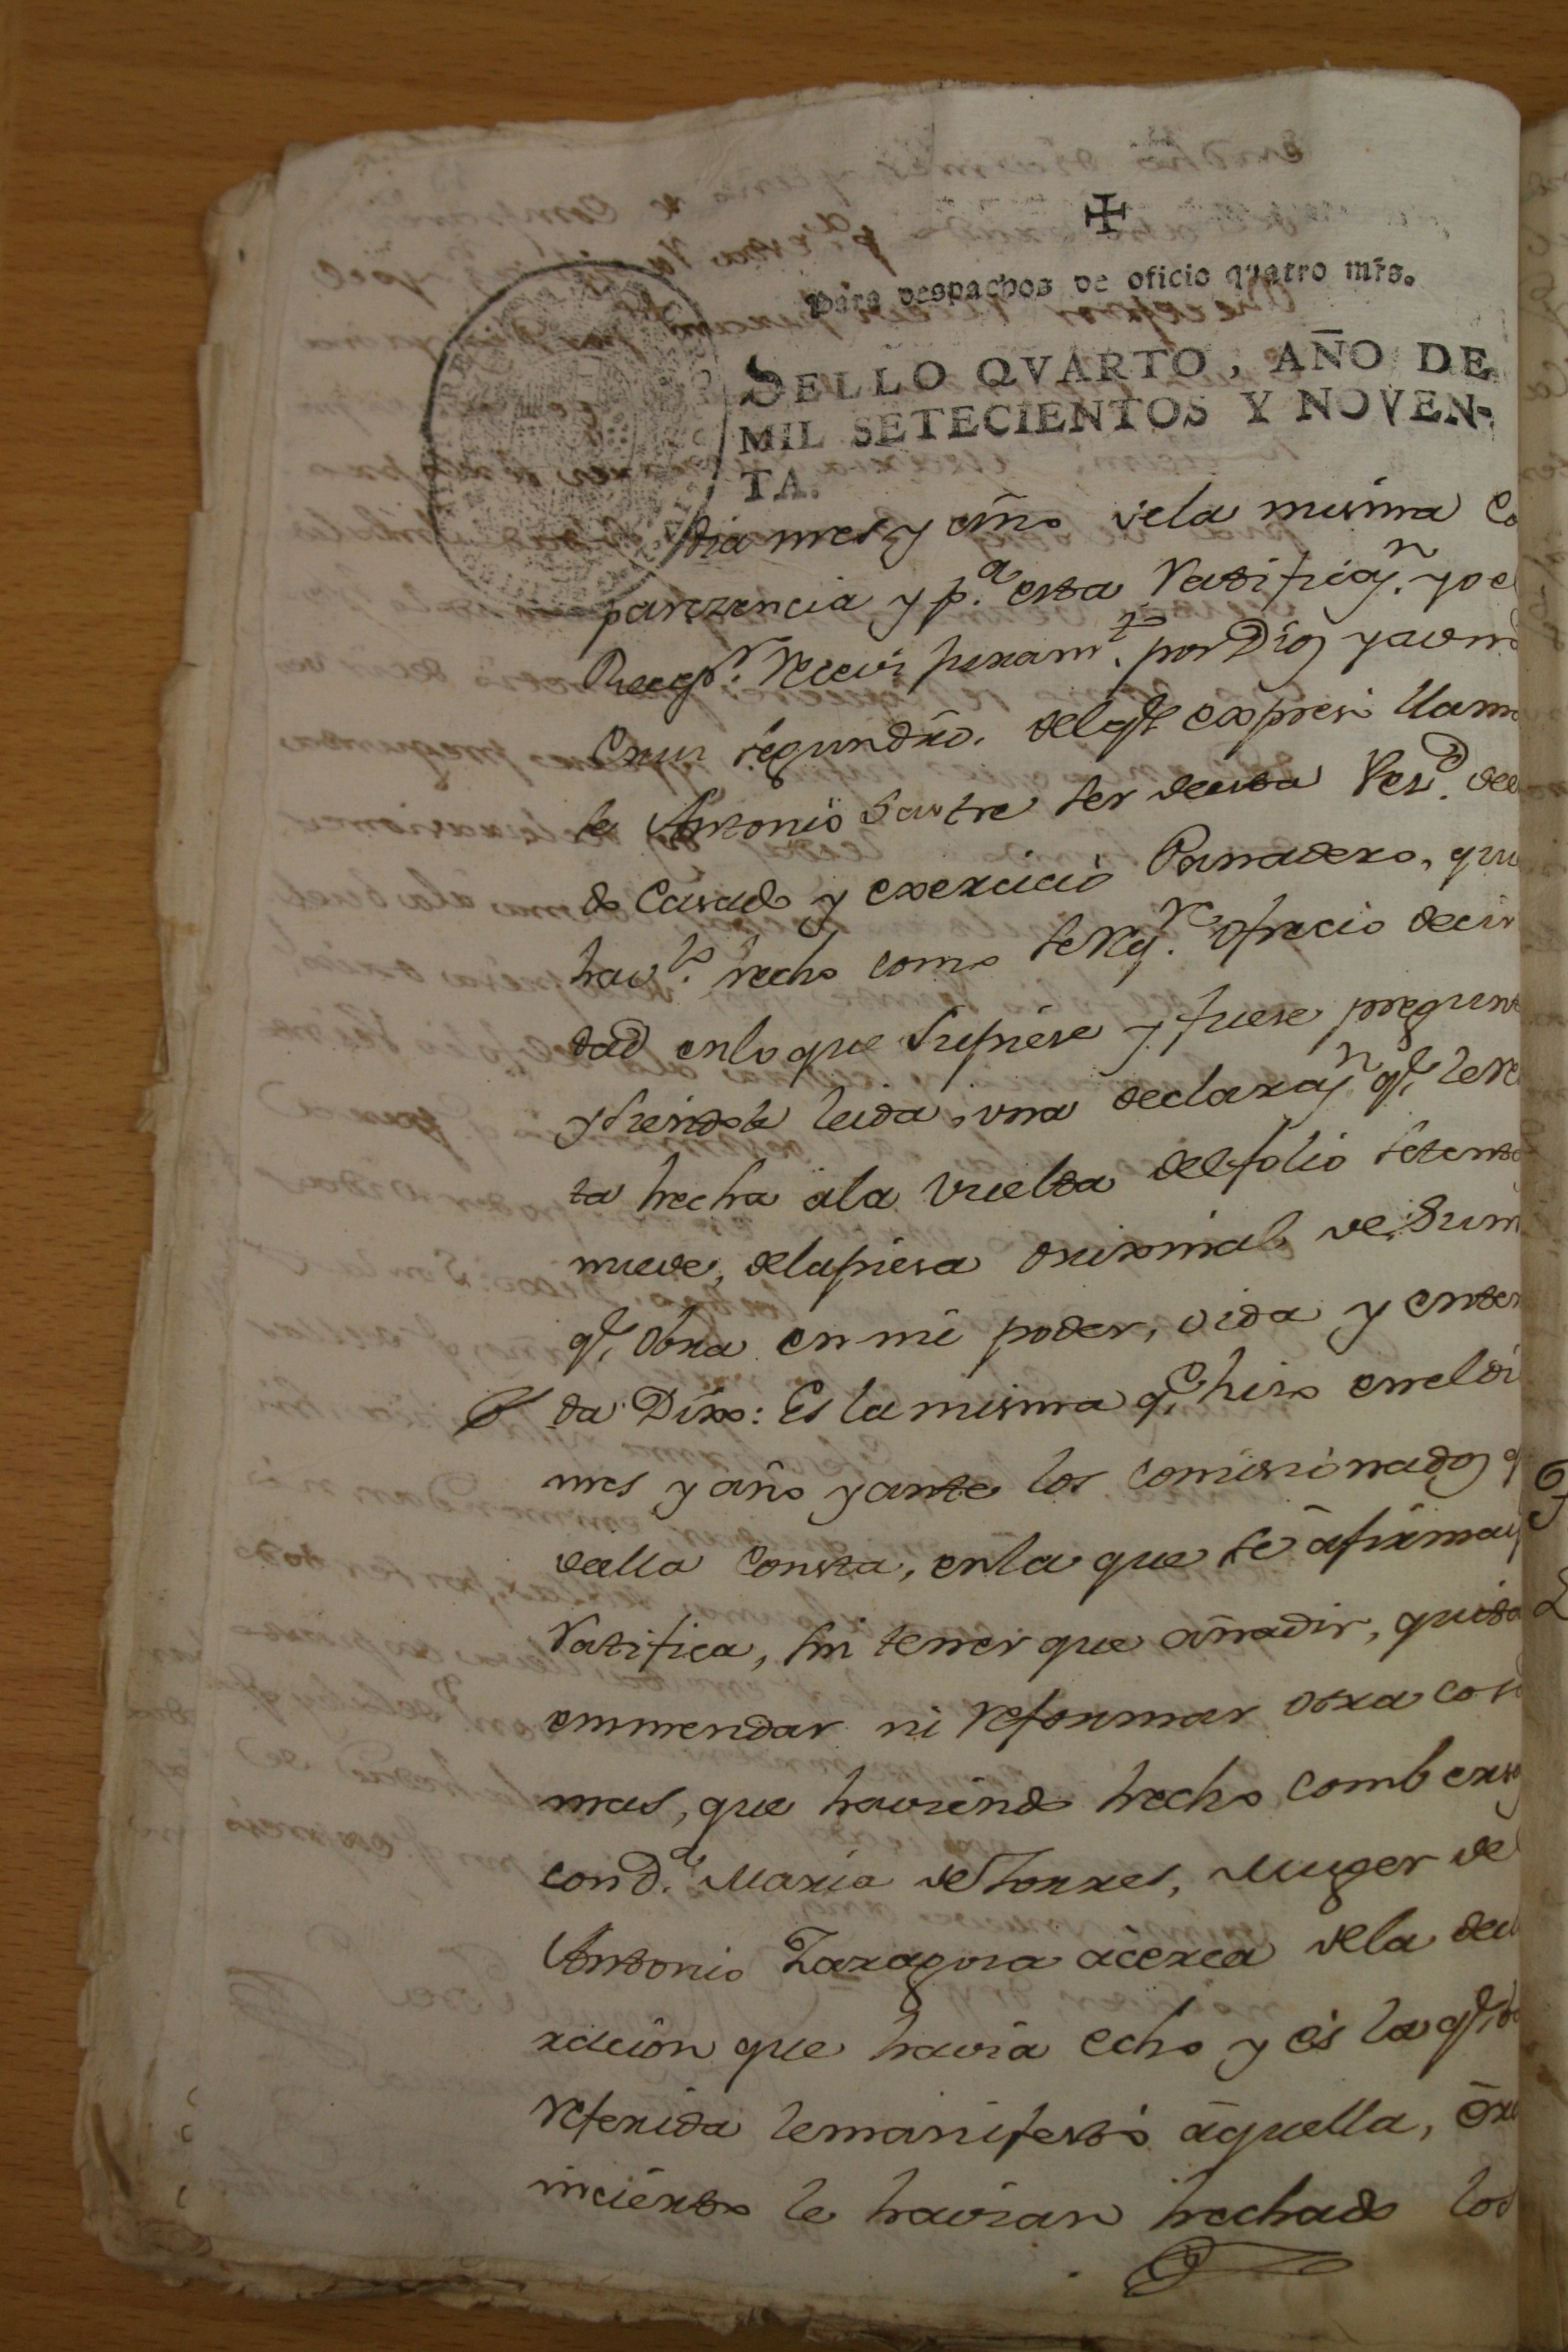 ✠
Para despachos de oficio quatro mrs.
SELLO QVARTO, AÑO DE
MIL SETECIENTOS Y NOVEN-
TA.
dia mes y año dela misma Co
parezencia y p.ª esta Ratificaz.n yo el
Recep.r Recivi juram.to por Dios y a una
Cruz segun dró. del q.e expresó llamar
le Antonio Sastre ser de esta Vez.d de
do Casado y exercicio Panadero, qu
hav.do hecho como se req.re ofrecio decir
dad enlo que Supiese y fuese pregunt
y siendole leida, una declaraz.n q.e le
ta hecha ala vuelta del folio setenta
nueve, dela pieza orixinal de Sum
q.e obra en mi poder, oida y enten
da Dixo: Es la misma q.e hizo en el di
mes y año y ante los comisionados q
de ella Consta, enla que se afirma y
Ratifica, sin tener que añadir, quitar
enmendar ni reformar otra cosa
mas, que haviendo hecho combers
con D.ª Maria de Torres, Muger de
Antonio Zaragoza acerca dela decl
racion que havia echo y es la q.e
referida le manifestó aquella, era
incierto le havian hechado los